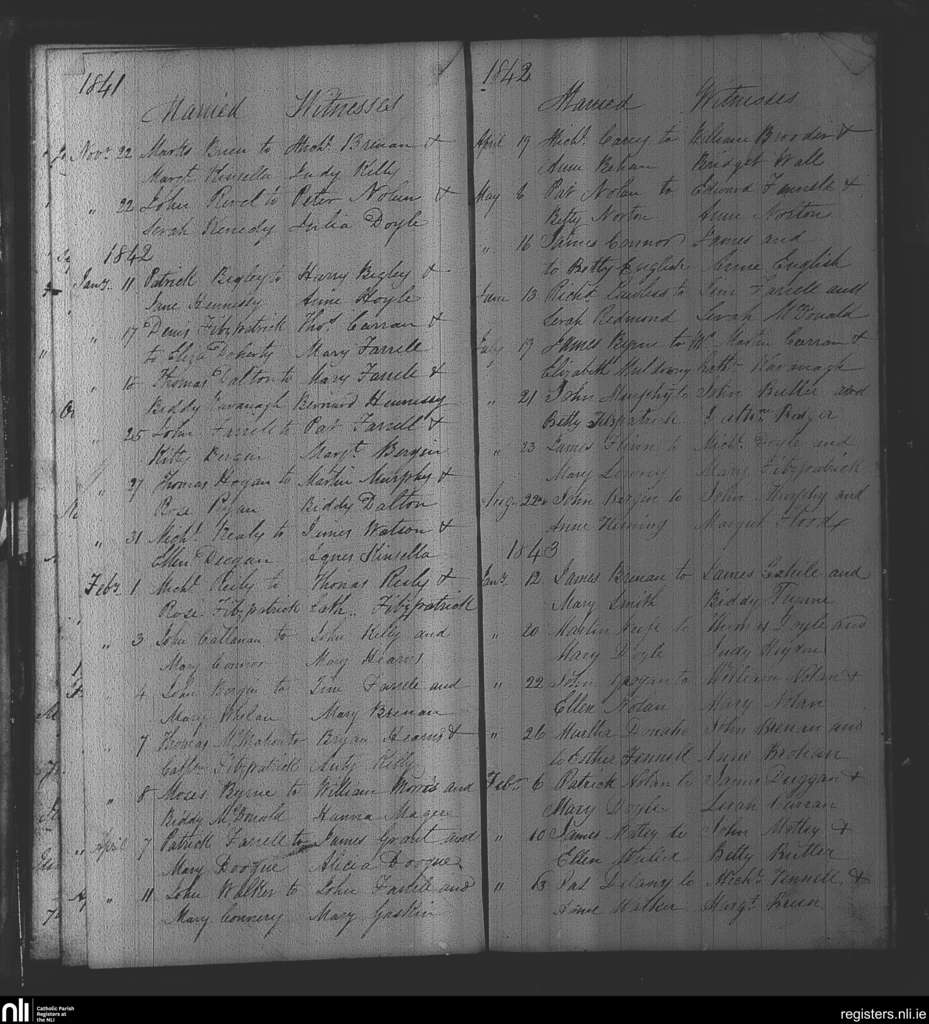 1841
Married Witnesses
Novr 22 Marks Brien to Michl Brenan &
Margt Kinsella Judy Kelly
" 22 John Rivel to Peter Nolan &
Sarah Kenedy Julia Doyle
1842
Jany 11 Patrick Bigley to Harry Bigley &
Jane Hennessy Anne Hoyle
" 17 Denis Fitzpatrick Thos Curran &
to Eliza Doherty Mary Farrell
" 18 Thomas Dalton to Mary Farrell &
Biddy Kavanagh Bernard Hennessy
" 25 John Farrell to Pat Farrell &
Kitty Margt Bergin
" 27 Thomas Hogan to Martin Murphy &
Rose Ryan Biddy Dalton
" 31 Michl Healy to James Watson &
Ellen Deegan Agnes Kinsella
Feby 1 Michl Reily to Thomas Reily &
Rose Fitzpatrick Cath. Fitzpatrick
" 3 John Callanan to John Kelly and
Mary Connor Mary Hearns
4 John Bergin to Jim Farrell and
Mary Whelan Mary Brenan
" 7 Thomas McMahon to Bryan Hearns &
Fitzpatrick Judy Kelly
" 8 Moses Byrne to William Morris and
Biddy McDonald Hanna Magee
" April 7 Patrick Farrell to James Grant and
Mary Doogue Alicia Doogue
" 11 John Walker to John Farrell and
Mary Connery Mary Gaskin
1842
Married Witnesses
April 19 Michl Carey to William Brooder &
Anne Behan Bridget Wall
May 6 Pat Nolan to Edward Fennell &
Betty Norton Anne Norton
" 16 James Connor James and
to Betty English Anne English
June 13 Richd Lawless to Jim Farrell and
Sarah Redmond Sarah McDonald
July 19 James Byrne to Martin Curran &
Elizabeth Muldowny Kavanagh
" 21 John Murphy to John Butler and
Betty Fitzpatrick
" 23 James Flinn to Michl Doyle and
Mary Lowrey Mary Fitzpatrick
Aug 22 John Bergin to John Murphy and
Anne Fleming Margret Flood
1843
Jany 12 James Brenan to James Cahill and
Mary Smith Biddy
" 20 Martin to Thomas Doyle and
Mary Doyle Judy
" 22 John to William Nolan &
Ellen Nolan Mary Nolan
" 26 John Brenan and
to Esther Fennell Anne
Feby 6 Patrick Nolan to James Duggan &
Mary Doyle Curran
" 10 James Motley to John Motley &
Ellen Betty Butler
" 13 Pat Delany to Michl Fennell &
Anne Walker Margt
nli
Catholic Parish
Registers at
the NLI
registers.nli.ie